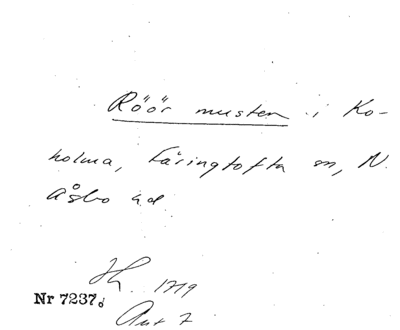 Röör musten i Ko-
holma, Färingtofta sn, N.
Åsbo hd
1719
Nr 7237